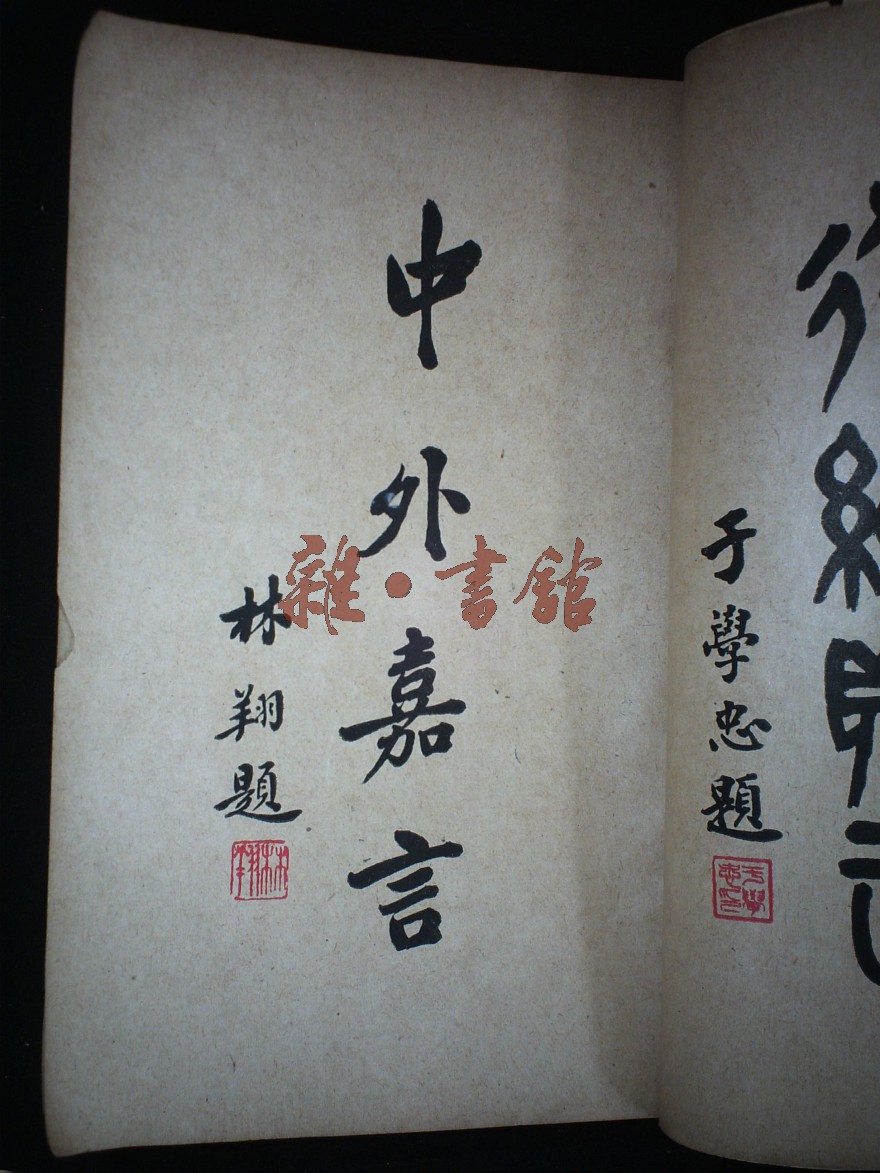 于學忠題
中外嘉言
林翔題
雜·書館
林翔
于學忠印